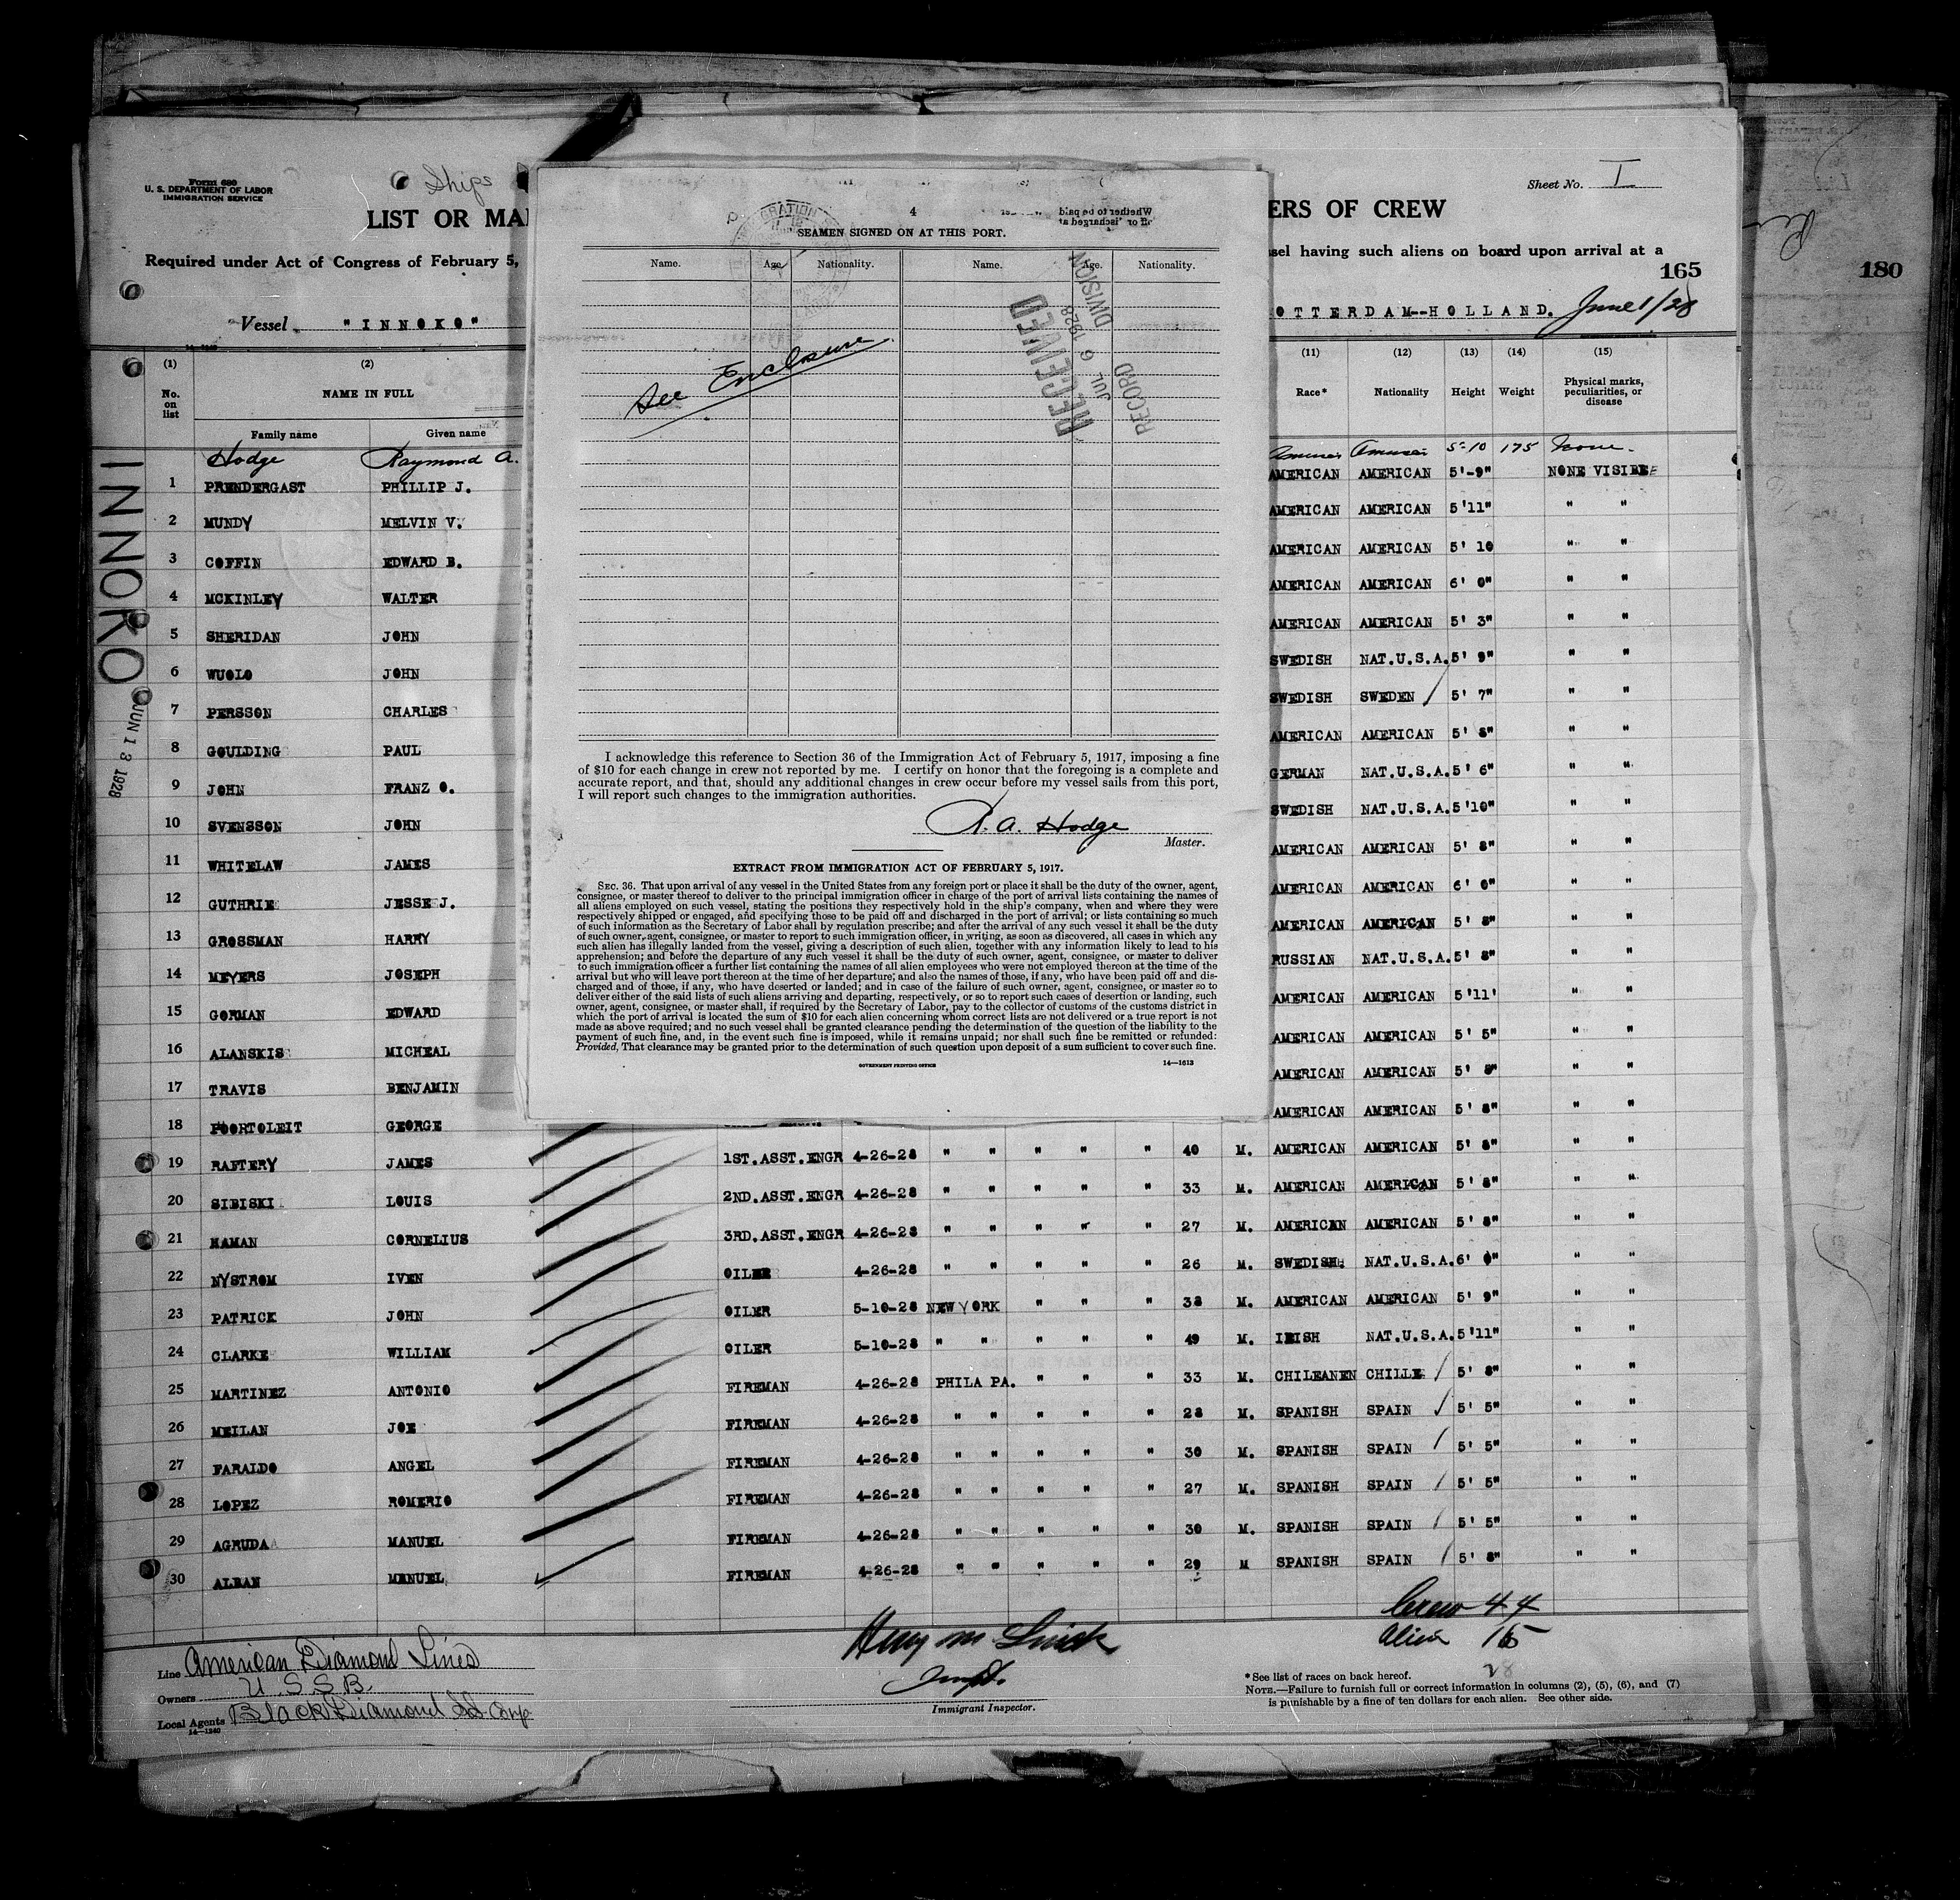 Form 680
U. S. DEPARTMENT OF LABOR
IMMIGRATION SERVICE
Ships
Sheet No. I
LIST OR MA
ERS OF CREW
Required under Act of Congress of February 5,
sel having such aliens on board upon arrival at a
165
180
Vessel "INNOKO"
OTTERDAM--HOLLAND. June 1/28
(1) (2) (11) (12) (13) (14) (15)
No. on list NAME IN FULL Race* Nationality Height Weight Physical marks, peculiarities, or disease
Family name Given name
INNORO
JUN 13 1928
Hodge Raymond A. 5-10 175 None.
1 PRENDERGAST PHILLIP J. AMERICAN AMERICAN 5'-9" NONE VISIBLE
2 MUNDY MELVIN V. AMERICAN AMERICAN 5'11" " "
3 COFFIN EDWARD B. AMERICAN AMERICAN 5' 10 " "
4 MCKINLEY WALTER AMERICAN AMERICAN 6' 0" " "
5 SHERIDAN JOHN AMERICAN AMERICAN 5' 3" " "
6 WUOLO JOHN SWEDISH NAT.U.S.A. 5' 9" " "
7 PERSSON CHARLES SWEDISH SWEDEN / 5' 7" " "
8 GOULDING PAUL AMERICAN AMERICAN 5' 8" " "
9 JOHN FRANZ O. GERMAN NAT.U.S.A. 5' 6" " "
10 SVENSSON JOHN SWEDISH NAT.U.S.A. 5'10" " "
11 WHITELAW JAMES AMERICAN AMERICAN 5' 8" " "
12 GUTHRIE JESSE J. AMERICAN AMERICAN 6' 0" " "
13 GROSSMAN HARRY AMERICAN AMERICAN 5' 8" " "
14 MEYERS JOSEPH RUSSIAN NAT.U.S.A. 5' 8" " "
15 GORMAN EDWARD AMERICAN AMERICAN 5'11' " "
16 ALANSKIS MICHEAL AMERICAN AMERICAN 5' 5" " "
17 TRAVIS BENJAMIN AMERICAN AMERICAN 5' 8" " "
18 POORTOLEIT GEORGE AMERICAN AMERICAN 5' 8" " "
19 RAFTERY JAMES 1ST.ASST.ENGR 4-26-28 " " " " " 40 M. AMERICAN AMERICAN 5' 8" " "
20 SIBISKI LOUIS 2ND.ASST.ENGR 4-26-28 " " " " " 33 M. AMERICAN AMERICAN 5' 8" " "
21 MAMAN CORNELIUS 3RD.ASST.ENGR 4-26-28 " " " " " 27 M. AMERICAN AMERICAN 5' 8" " "
22 NYSTROM IVEN OILER 4-26-28 " " " " " 26 M. SWEDISH NAT.U.S.A. 6' 0" " "
23 PATRICK JOHN OILER 5-10-28 NEW YORK " " " 38 M. AMERICAN AMERICAN 5' 9" " "
24 CLARKE WILLIAM OILER 5-10-28 " " " " " 49 M. IRISH NAT.U.S.A. 5'11" " "
25 MARTINEZ ANTONIO FIREMAN 4-26-28 PHILA PA. " " " 33 M. CHILEANEN CHILLE / 5' 8" " "
26 MEILAN JOE FIREMAN 4-26-28 " " " " " 28 M. SPANISH SPAIN / 5' 5" " "
27 FARALDO ANGEL FIREMAN 4-26-28 " " " " " 30 M. SPANISH SPAIN / 5' 5" " "
28 LOPEZ ROMERIO FIREMAN 4-26-28 " " " " " 27 M. SPANISH SPAIN / 5' 5" " "
29 AGRUDA MANUEL FIREMAN 4-26-28 " " " " " 30 M. SPANISH SPAIN / 5' 5" " "
30 ALBAN MANUEL FIREMAN 4-26-28 " " " " " 29 M SPANISH SPAIN / 5' 8" " "
Crew 44
Alien 15
28
Line American Diamond Lines
Owners U.S.S.B.
Local Agents Black Diamond SS Corp
14-1240
Immigrant Inspector.
*See list of races on back hereof.
NOTE.—Failure to furnish full or correct information in columns (2), (5), (6), and (7)
is punishable by a fine of ten dollars for each alien. See other side.
4
Whether to be paid
off or discharged at
SEAMEN SIGNED ON AT THIS PORT.
Name. Age. Nationality. Name. Age. Nationality.
RECEIVED
JUL 6 1928
RECORD DIVISION
See Enclosure
I acknowledge this reference to Section 36 of the Immigration Act of February 5, 1917, imposing a fine
of $10 for each change in crew not reported by me. I certify on honor that the foregoing is a complete and
accurate report, and that, should any additional changes in crew occur before my vessel sails from this port,
I will report such changes to the immigration authorities.
R. A. Hodge
Master.
EXTRACT FROM IMMIGRATION ACT OF FEBRUARY 5, 1917.
SEC. 36. That upon arrival of any vessel in the United States from any foreign port or place it shall be the duty of the owner, agent,
consignee, or master thereof to deliver to the principal immigration officer in charge of the port of arrival lists containing the names of
all aliens employed on such vessel, stating the positions they respectively hold in the ship's company, when and where they were
respectively shipped or engaged, and specifying those to be paid off and discharged in the port of arrival; or lists containing so much
of such information as the Secretary of Labor shall by regulation prescribe; and after the arrival of any such vessel it shall be the duty
of such owner, agent, consignee, or master to report to such immigration officer, in writing, as soon as discovered, all cases in which any
such alien has illegally landed from the vessel, giving a description of such alien, together with any information likely to lead to his
apprehension; and before the departure of any such vessel it shall be the duty of such owner, agent, consignee, or master to deliver
to such immigration officer a further list containing the names of all alien employees who were not employed thereon at the time of the
arrival but who will leave port thereon at the time of her departure; and also the names of those, if any, who have been paid off and dis-
charged and of those, if any, who have deserted or landed; and in case of the failure of such owner, agent, consignee, or master so to
deliver either of the said lists of such aliens arriving and departing, respectively, or so to report such cases of desertion or landing, such
owner, agent, consignee, or master shall, if required by the Secretary of Labor, pay to the collector of customs of the customs district in
which the port of arrival is located the sum of $10 for each alien concerning whom correct lists are not delivered or a true report is not
made as above required; and no such vessel shall be granted clearance pending the determination of the question of the liability to the
payment of such fine, and, in the event such fine is imposed, while it remains unpaid; nor shall such fine be remitted or refunded:
Provided, That clearance may be granted prior to the determination of such question upon deposit of a sum sufficient to cover such fine.
GOVERNMENT PRINTING OFFICE
14—1613